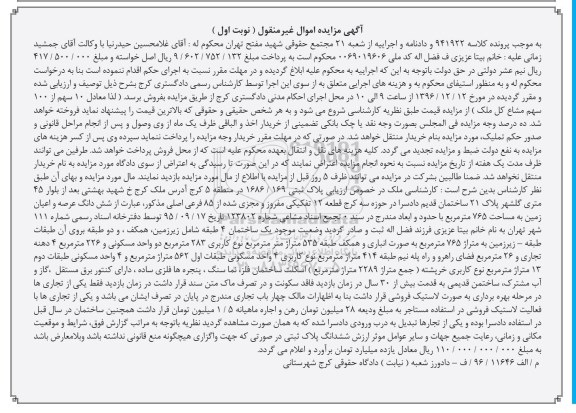 آگهی مزایده اموال غیرمنقول ( نوبت اول )
به موجب پرونده کلاسه ۹۴۱۹۲۲ و دادنامه و اجراییه از شعبه ۲۱ مجتمع حقوقی شهید مفتح تهران محکوم له : آقای غلامحسین حیدرنیا با وکالت آقای جمشید
زمانی علیه : خانم بیتا عزیزی ف فضل اله کد ملی ۰۰۶۹۰۱۹۶۰۶ محکوم است به پرداخت مبلغ ۱۳۲ / ۷۵۲ / ۶۰۲ / ۹ ریال اصل خواسته و مبلغ ۰۰۰ / ۵۰۰ / ۴۱۷
ریال نیم عشر دولتی در حق دولت باتوجه به این که اجراییه به محکوم علیه ابلاغ گردیده و در مهلت مقرر نسبت به اجرای حکم اقدام ننموده است بنا به درخواست
محکوم له و به منظور استیفای محکوم به و هزینه های اجرایی متعلق به از سوی این اجرا توسط کارشناس رسمی دادگستری کرج بشرح ذیل توصیف و ارزیابی شده
و مقرر گردیده در مورخ ۱۲ / ۱۲ / ۱۳۹۶ از ساعت ۹ الی ۱۰ در محل اجرای احکام مدنی دادگستری کرج از طریق مزایده بفروش برسد. ( لذا معادل ۱۰ سهم از ۱۰۰
سهم مشاع کل ملک ) از مزایده قیمت طبق نظریه کارشناسی شروع می شود و به هر شخص حقیقی و حقوقی که بالاترین قیمت را پیشنهاد نماید فروخته خواهد
شد. ده درصد وجه مزایده فی المجلس بصورت وجه نقد یا چک بانکی تضمینی از خریدار اخذ و الباقی ظرف یک ماه از وی وصول و پس از انجام مراحل قانونی و
صدور حکم تملیک، مورد مزایده بنام خریدار منتقل خواهد شد. در صورتی که در مهلت مقرر خریدار وجه مزایده را پرداخت ننماید سپرده وی پس از کسر هزینه های
مزایده به نفع دولت ضبط و مزایده تجدید می گردد. کلیه هزینه های نقل و انتقال بعهده محکوم علیه است که از محل فروش پرداخت خواهد شد. طرفین می توانند
ظرف مدت یک هفته از تاریخ مزایده نسبت به نحوه انجام مزایده اعتراض نمایند که در این صورت تا رسیدگی به اعتراض از سوی دادگاه مورد مزایده به نام خریدار
منتقل نخواهد شد. ضمنا طالبین بشرکت در مزایده می توانند ظرف ۵ روز قبل از مزایده با اطلاع از مال مورد مزایده بازدید نمایند. مال مورد مزایده و بهای آن طبق
نظر کارشناس بدین شرح است : کارشناسی ملک در خصوص ارزیابی پلاک ثبتی ۱۶۹ / ۱۶۸۶ در منطقه ۵ کرج آدرس ملک کرج خ شهید بهشتی بعد از بلوار ۴۵
متری گلشهر پلاک ۲۱ ساختمان قدیم دادسرا در حوزه سه کرج قطعه ۱۲ تفکیکی مفروز و مجزی شده از ۸۵ فرعی اصلی مذکور، عبارت از شش دانگ عرصه و اعیان
زمین به مساحت ۷۶۵ مترمربع با حدود و ابعاد مندرج در سند - تجمیع اسناد مشاعی شماره ۱۲۳۸۰۲ تاریخ ۱۷ / ۰۹ / ۹۵ توسط دفترخانه اسناد رسمی شماره ۱۱۱
شهر تهران به نام خانم بیتا عزیزی فرزند فضل اله ثبت و صادر گردید وضعیت موجود یک ساختمان ۴ طبقه شامل زیرزمین، همکف ، و دو طبقه بروی آن طبقات
طبقه – زیرزمین به متراژ ۷۶۵ مترمربع به صورت انباری و همکف طبقه ۵۳۵ متراژ متر مترمربع نوع کاربری ۲۸۳ مترمربع دو واحد مسکونی و ۲۲۶ مترمربع ۴ دهنه
تجاری و ۲۶ مترمربع فضای راهرو و راه پله نیم طبقه ۴۱۴ متراژ مترمربع نوع کاربری ۴ واحد مسکونی طبقات اول ۵۶۲ متراژ مترمربع و ۴ واحد مسکونی طبقات دوم
۱۳ متراژ مترمربع نوع کاربری خرپشته ( جمع متراژ ۲۲۸۹ متراژ مترمربع ) اسکلت ساختمان فلز، نما سنگ ، پنجره ها فلزی ساده ، دارای کنتور برق مستقل ،گاز و
آب مشترک، ساختمان قدیمی به قدمت بیش از ۳۰ سال در زمان بازدید فاقد سکونت و در تصرف ماک متن سند قرار داشت در زمان بازدید فقط یکی از تجاری ها
در مرحله بهره برداری به صورت لاستیک فروشی قرار داشت بنا به اظهارات مالک چهار باب تجاری مندرج در پایان در تصرف ایشان می باشد و یکی از تجاری ها با
فعالیت لاستیک فروشی در استفاده مستاجر به مبلغ ودیعه ۲۸ میلیون تومان رهن و اجاره ماهیانه ۱/۵ میلیون تومان قرار داشت همچنین ساختمان در سال قبل
در استفاده دادسرا بوده و یکی از تجارها تبدیل به درب ورودی دادسرا شده که به همان صورت مشاهده گردید نظریه باتوجه به مراتب گزارش فوق، شرایط و موقعیت
مکانی و زمانی، رعایت جمیع جهات و سایر عوامل موثر ارزش ششدانگ پلاک ثبتی در صورتی که جهت واگذاری هیچگونه منع قانونی نداشته باشد وبلامعارض باشد
به مبلغ ۰۰۰ / ۰۰۰ / ۰۰۰ / ۱۱۰ ریال معادل یازده میلیارد تومان برآورد و اعلام می گردد.
م / الف ۱۱۶۴۶ / ۹۶ / ف – دادورز شعبه ( نیابت ) دادگاه حقوقی کرج شهرستانی